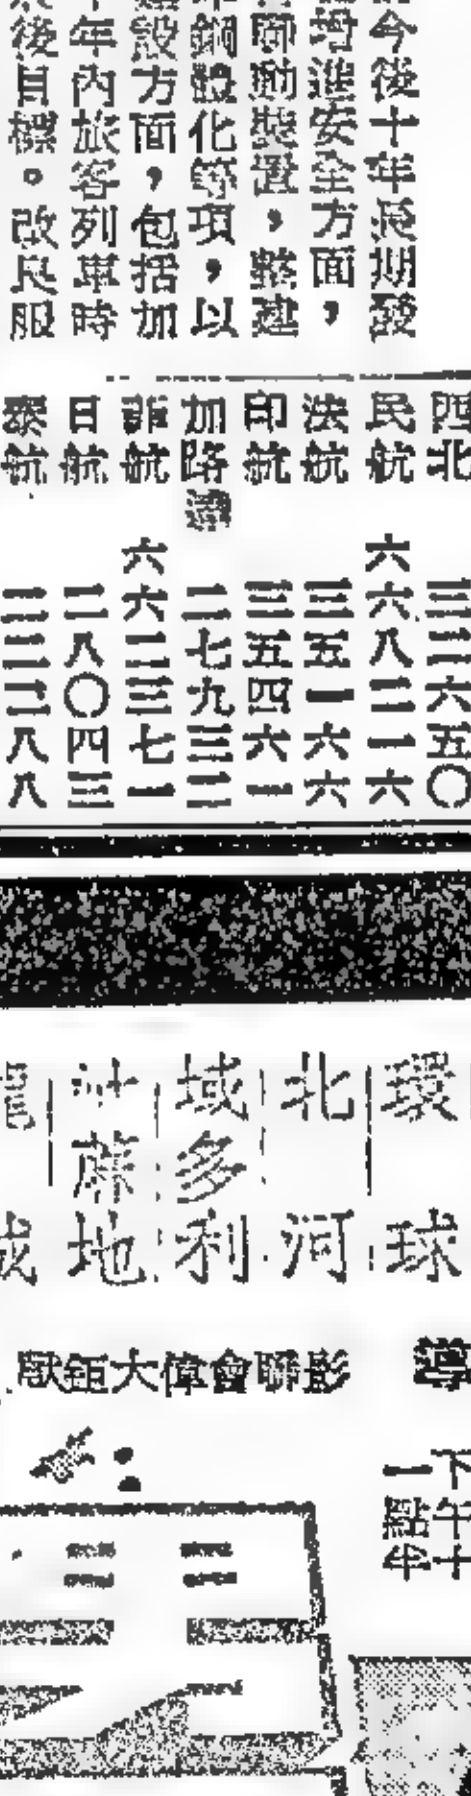 今後十年長期發
增進安全方面，
動裝置，整建
鋼體化等項，以
設方面，包括加
年內旅客列車時
後目標。改良服
西北 三三六五〇
民航 六六八二一六
法航 三五一六六
印航 三五四六一
加路 二七九三二
菲航 六六二三七一
日航 二八〇四三
泰航 二三二八八
環球
北河
域多利
地
影聯會偉大鉅獻
導
下午十
一點半